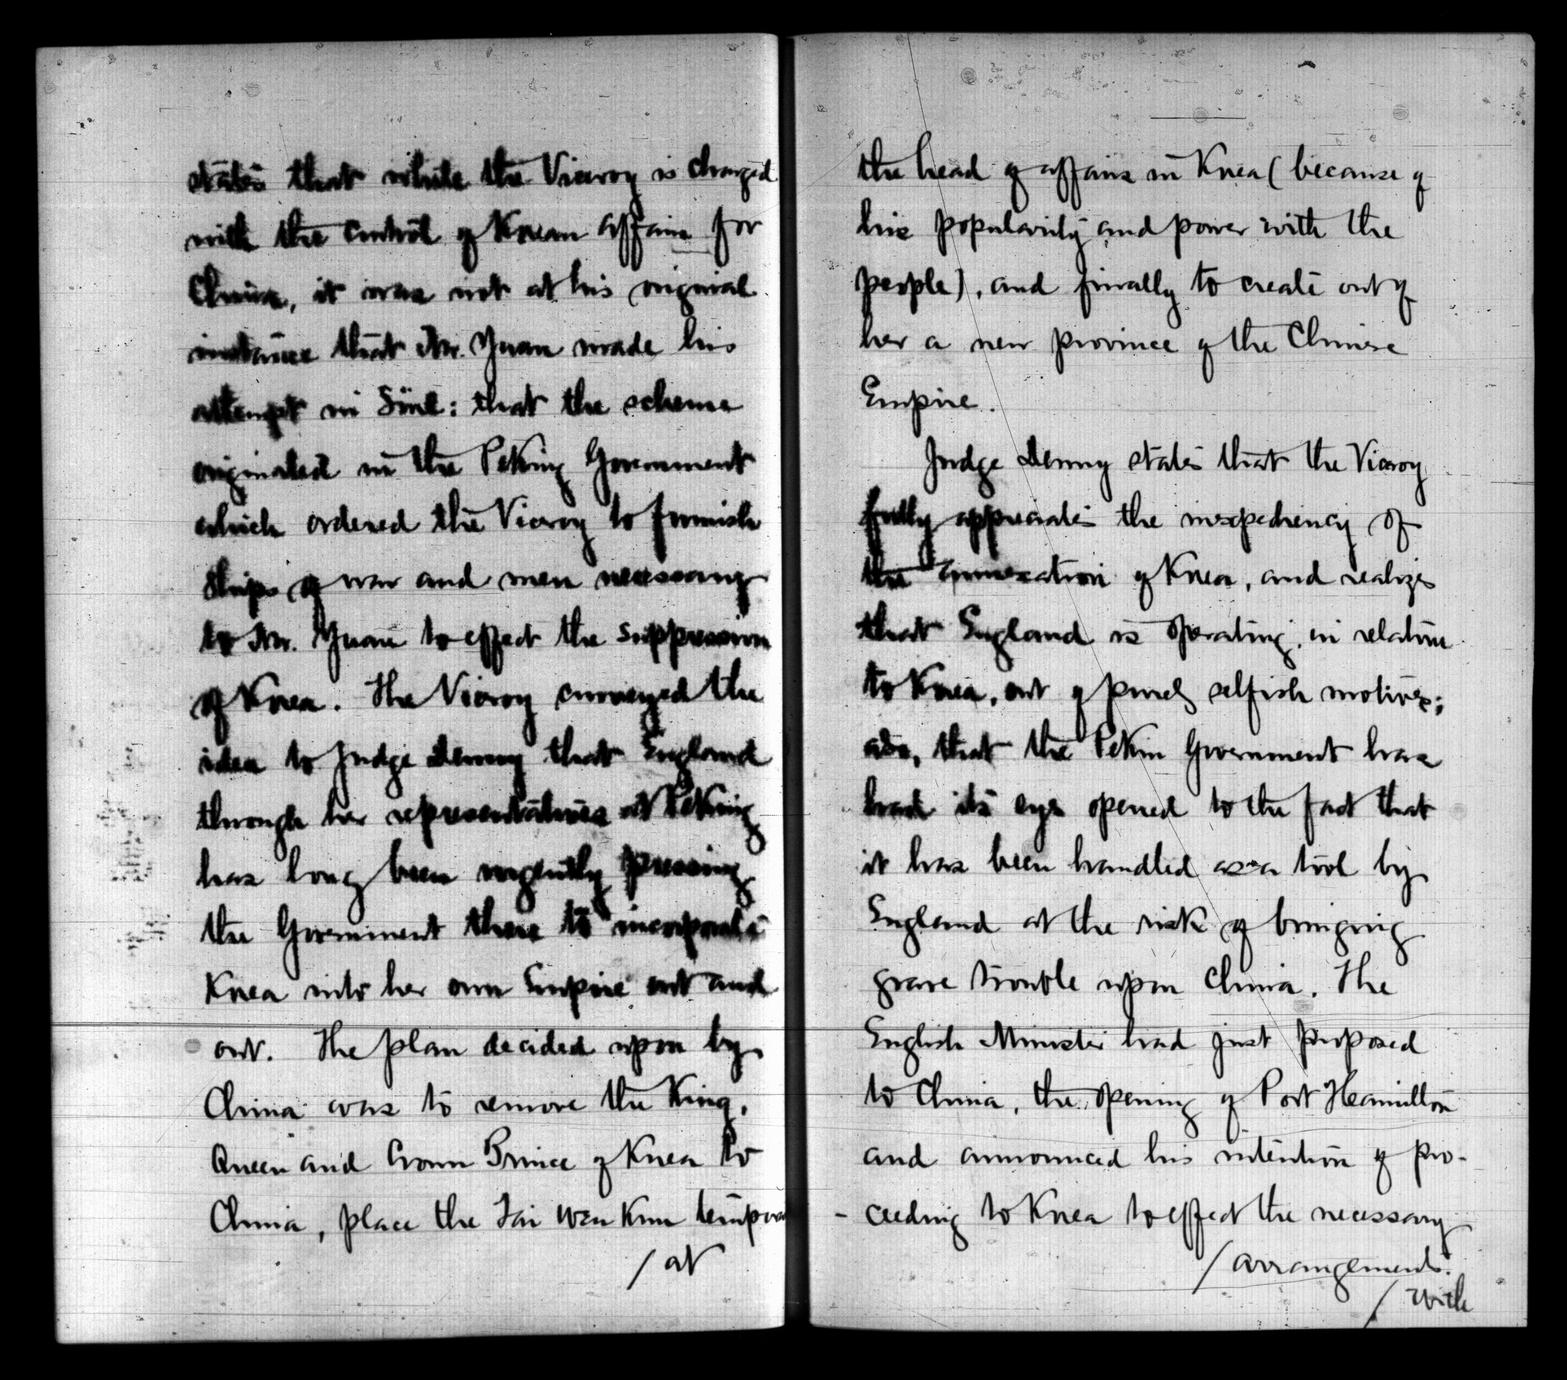 states that while the Viceroy is charged
with the control of Korean affairs for
China, it was not at his original
instance that Mr. Yuan made his
attempt in Söul: that the scheme
originated in the Peking Government
which ordered the Viceroy to furnish
ships of war and men necessary
to Mr. Yuan to effect the suppression
of Korea. The Viceroy conveyed the
idea to Judge Denny that England
through her representatives at Peking
has long been urgently pressing
the Government there to incorporate
Korea into her own Empire out and
out. The plan decided upon by
China was to remove the King,
Queen and Crown Prince of Korea to
China, place the Tai Wen Kun
/ at
the head of affairs in Korea (because of
his popularity and power with the
people), and finally to create out of
her a new province of the Chinese
Empire.
Judge Denny states that the Viceroy
fully appreciates the inexpediency of
the annexation of Korea, and realizes
that England is operating, in relation
to Korea, out of purely selfish motives;
also, that the Pekin Government has
had its eyes opened to the fact that
it has been handled as a tool by
England at the risk of bringing
grave trouble upon China. The
English Minister had just proposed
to China, the opening of Port Hamilton
and announced his intention of pro-
- ceeding to Korea to effect the necessary
/ arrangements.
/ with